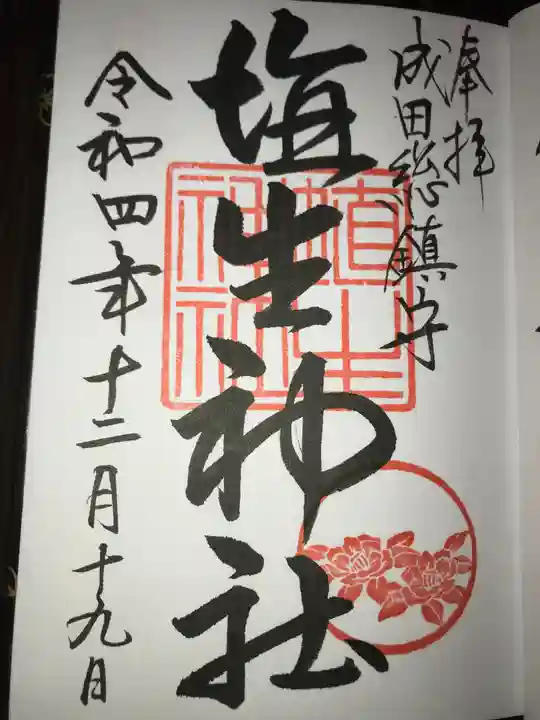 奉拝
成田総鎮守
埴生神社
令和四年十二月十九日
埴生
神社